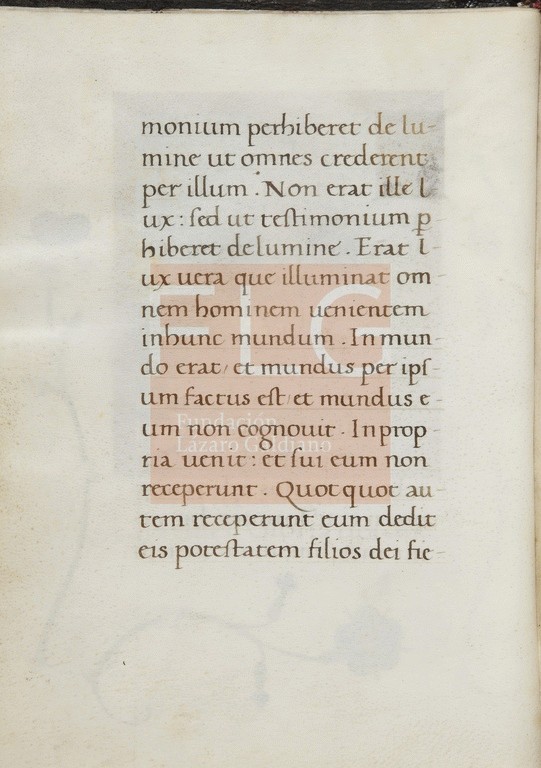 monium perhiberet de lu-
mine ut omnes crederent
per illum. Non erat ille l
ux: sed ut testimonium ꝑ
hiberet de lumine. Erat l-
ux uera que illuminat om-
nem hominem uenientem
in hunc mundum. In mun-
do erat/ et mundus per ips-
um factus est/ et mundus e-
um non cognouit. In prop-
ria uenit: et sui eum non
receperunt. Quotquot au-
tem receperunt eum dedit
eis potestatem filios dei fie-
FLG
Fundación
Lázaro Galdiano